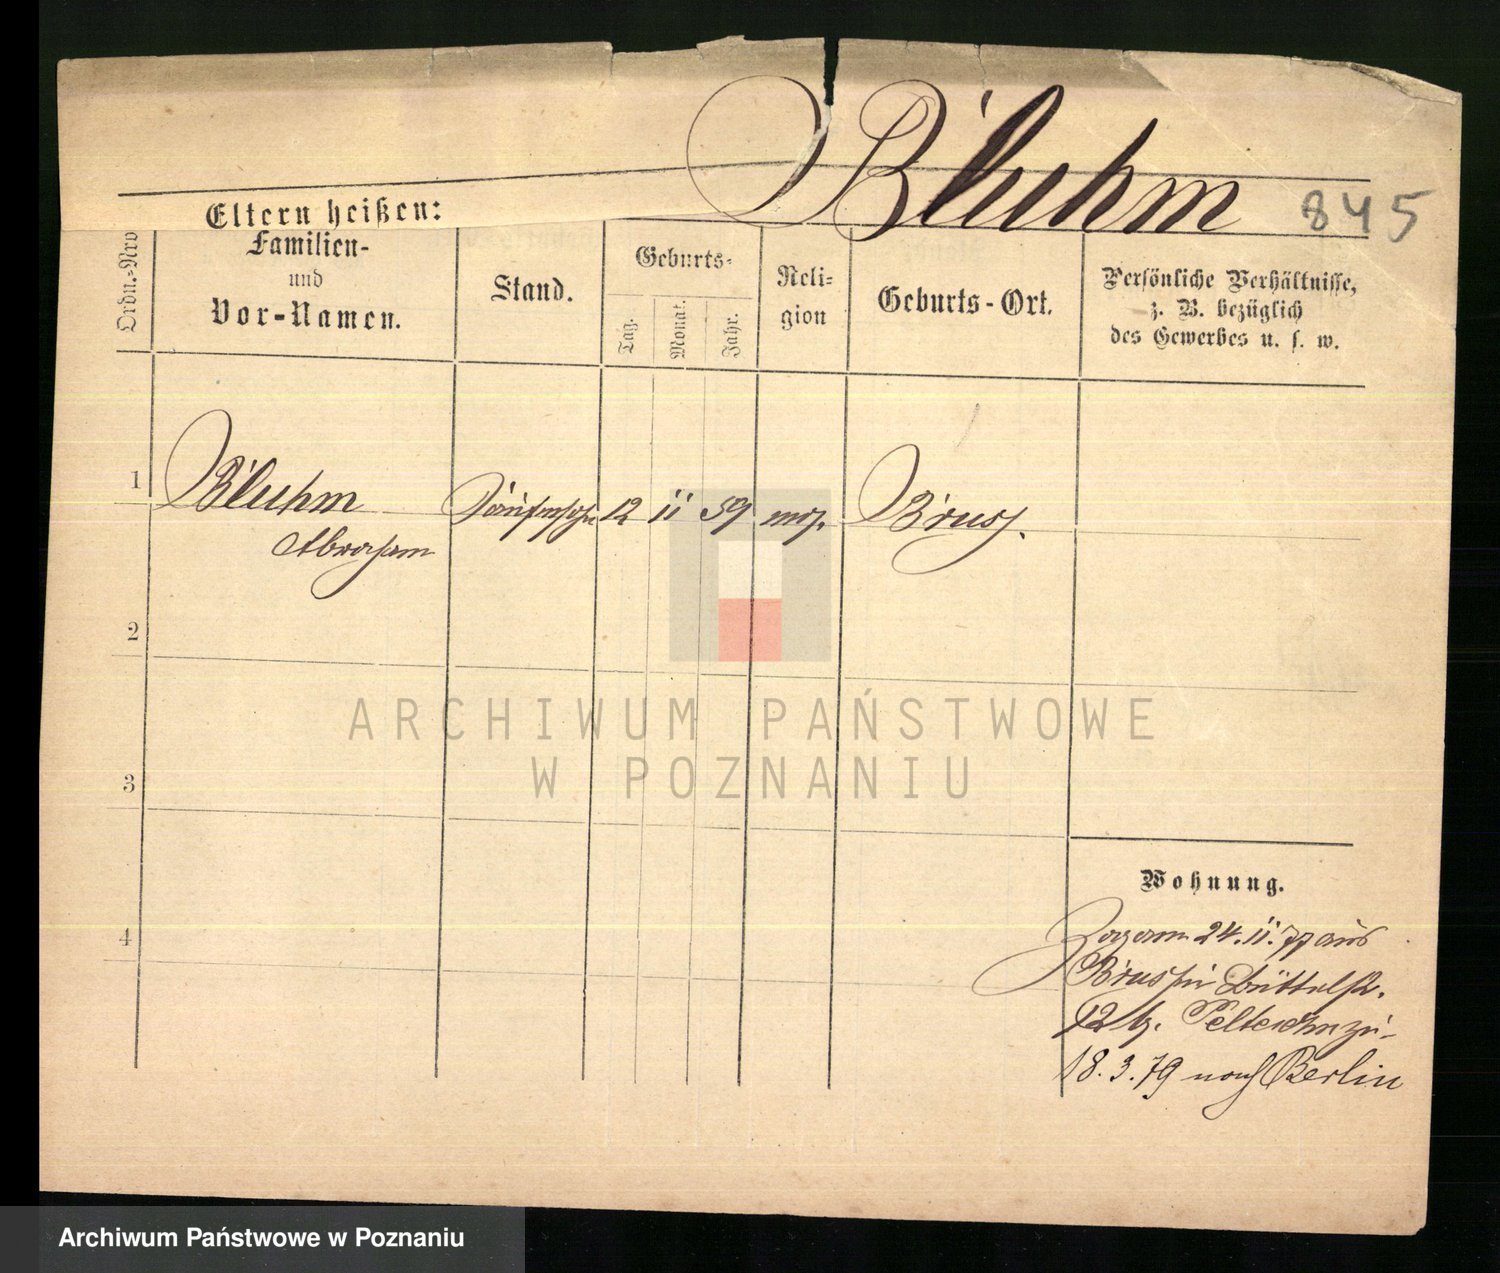 Bluhm
845
Eltern heißen:
Ordn.-Nro
Familien-
und
Vor-Namen.
Stand.
Geburts-
Tag.
Monat.
Jahr.
Reli-
gion
Geburts-Ort.
Persönliche Verhältnisse,
z. B. bezüglich
des Gewerbes u. s. w.
1
Bluhm
Abraham
12 11 59 mos. Bruss.
2
3
4
ARCHIWUM PAŃSTWOWE
W POZNANIU
Wohnung.
24. 11. 77 aus
Büttelstr.
12 b.
18. 3. 79 nach Berlin
Archiwum Państwowe w Poznaniu